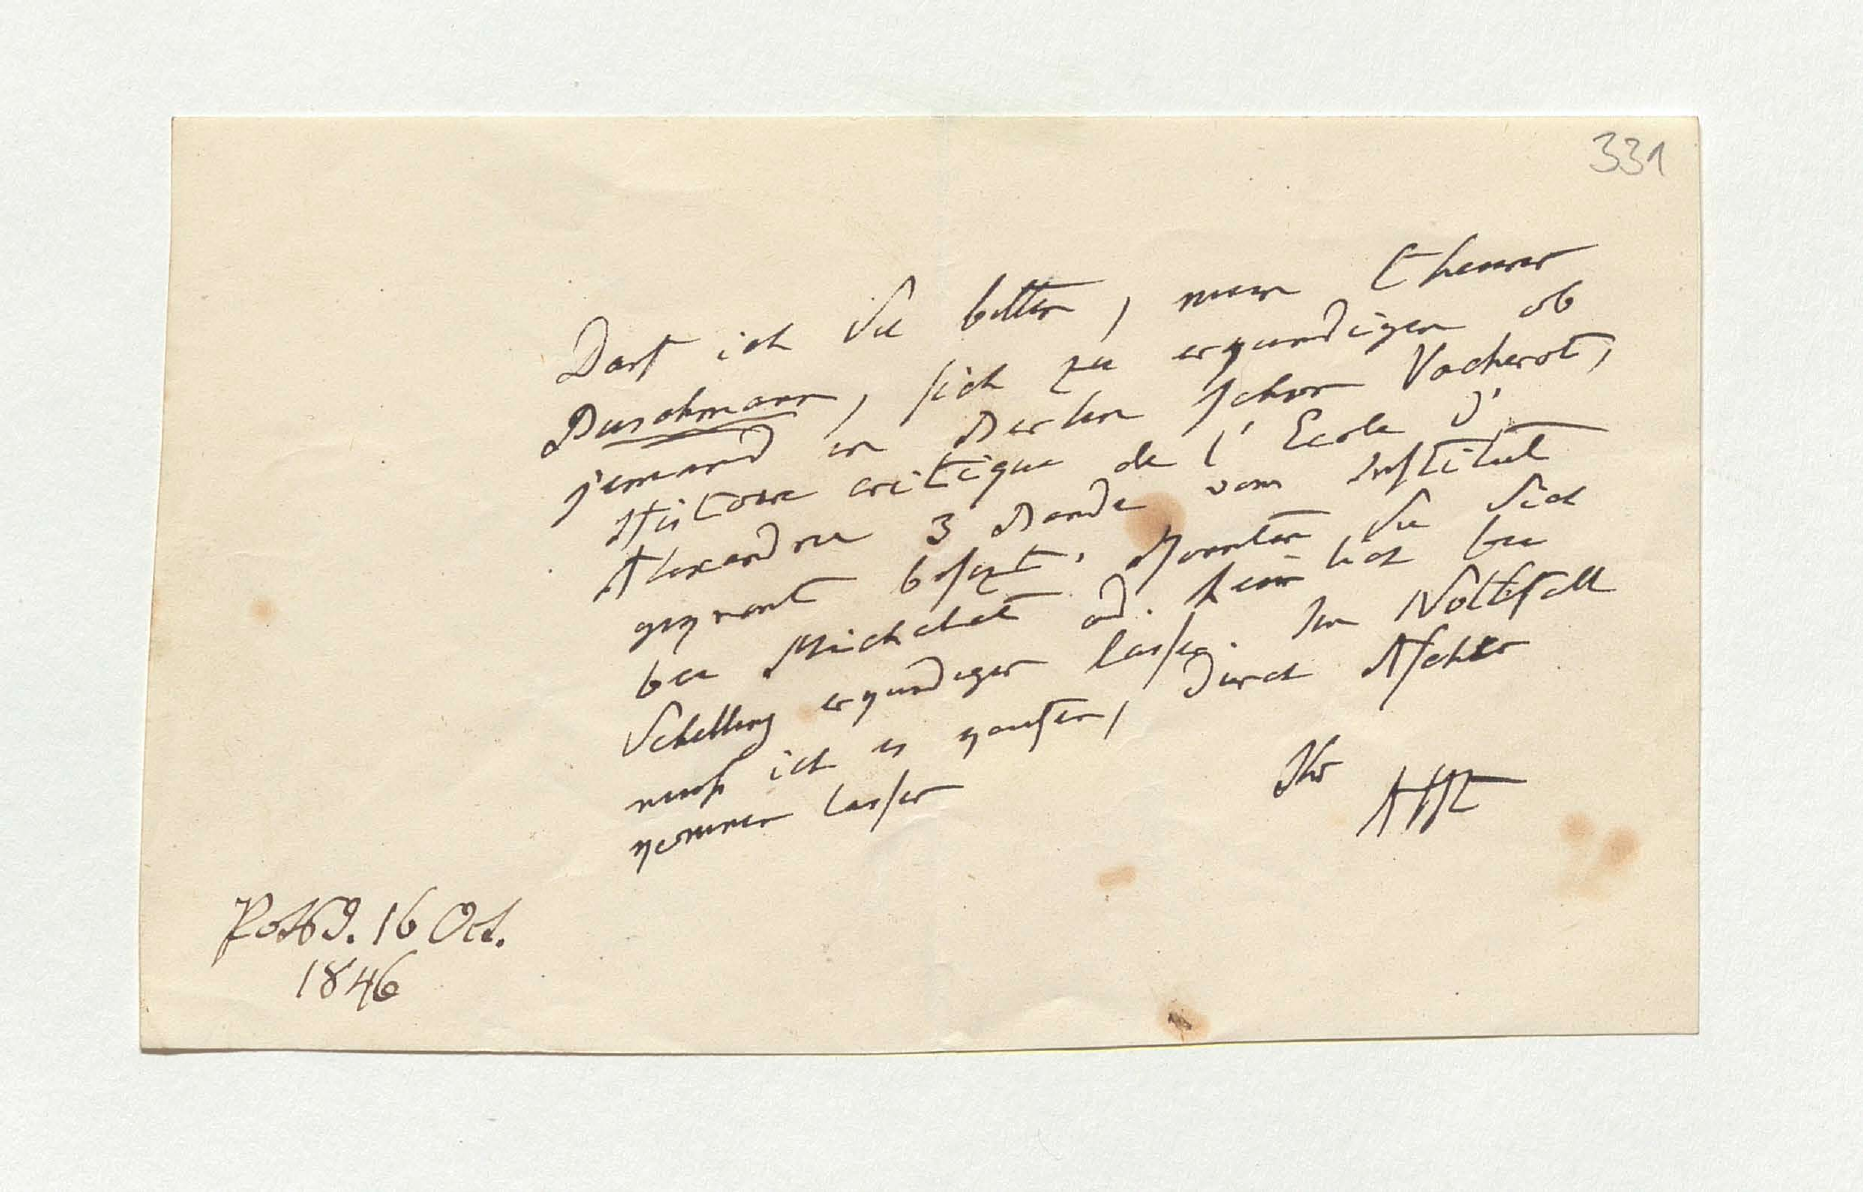 331
Darf ich Sie bitten, mein theurer
Buschmann, sich zu erkundigen ob
jemand in Berlin schon Vacherot,
Histoire critique de l'Ecole d'
Alexandrie 3 Bände vom Institut
gekrönt besizt. Könnten Sie sich
bei Michelet od. bei
Schelling erkundigen lassen. Im Nothfall
muß ich es kaufen, durch Asher
kommen lassen
Ihr
AHt
Potsd. 16 Oct.
1846